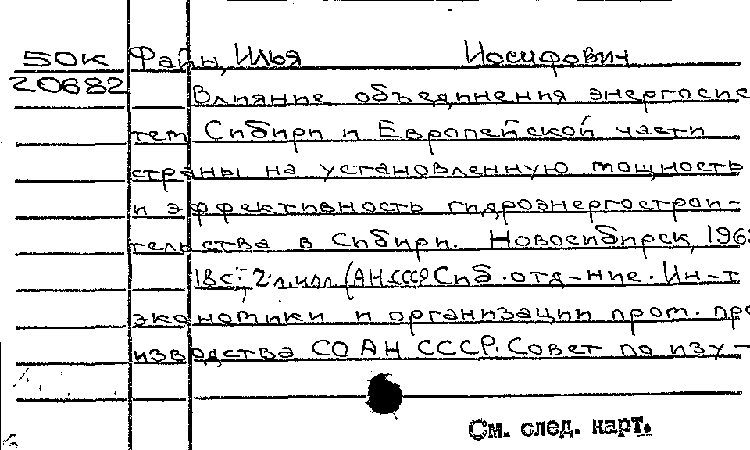 50к Файн, Илья Иосифович
20682 Влияние объединения энергосис
тем Сибири и Европейской части
страны на установленную мощность
и эффективность гидроэнергострои-
тельства в Сибири. Новосибирск, 196
18с; 2 л. ил. (АН СССР Сиб. отд-ние. Ин-т
экономики и организации пром. про
изводства СО АН СССР. Совет по изу-
См. след. карт.